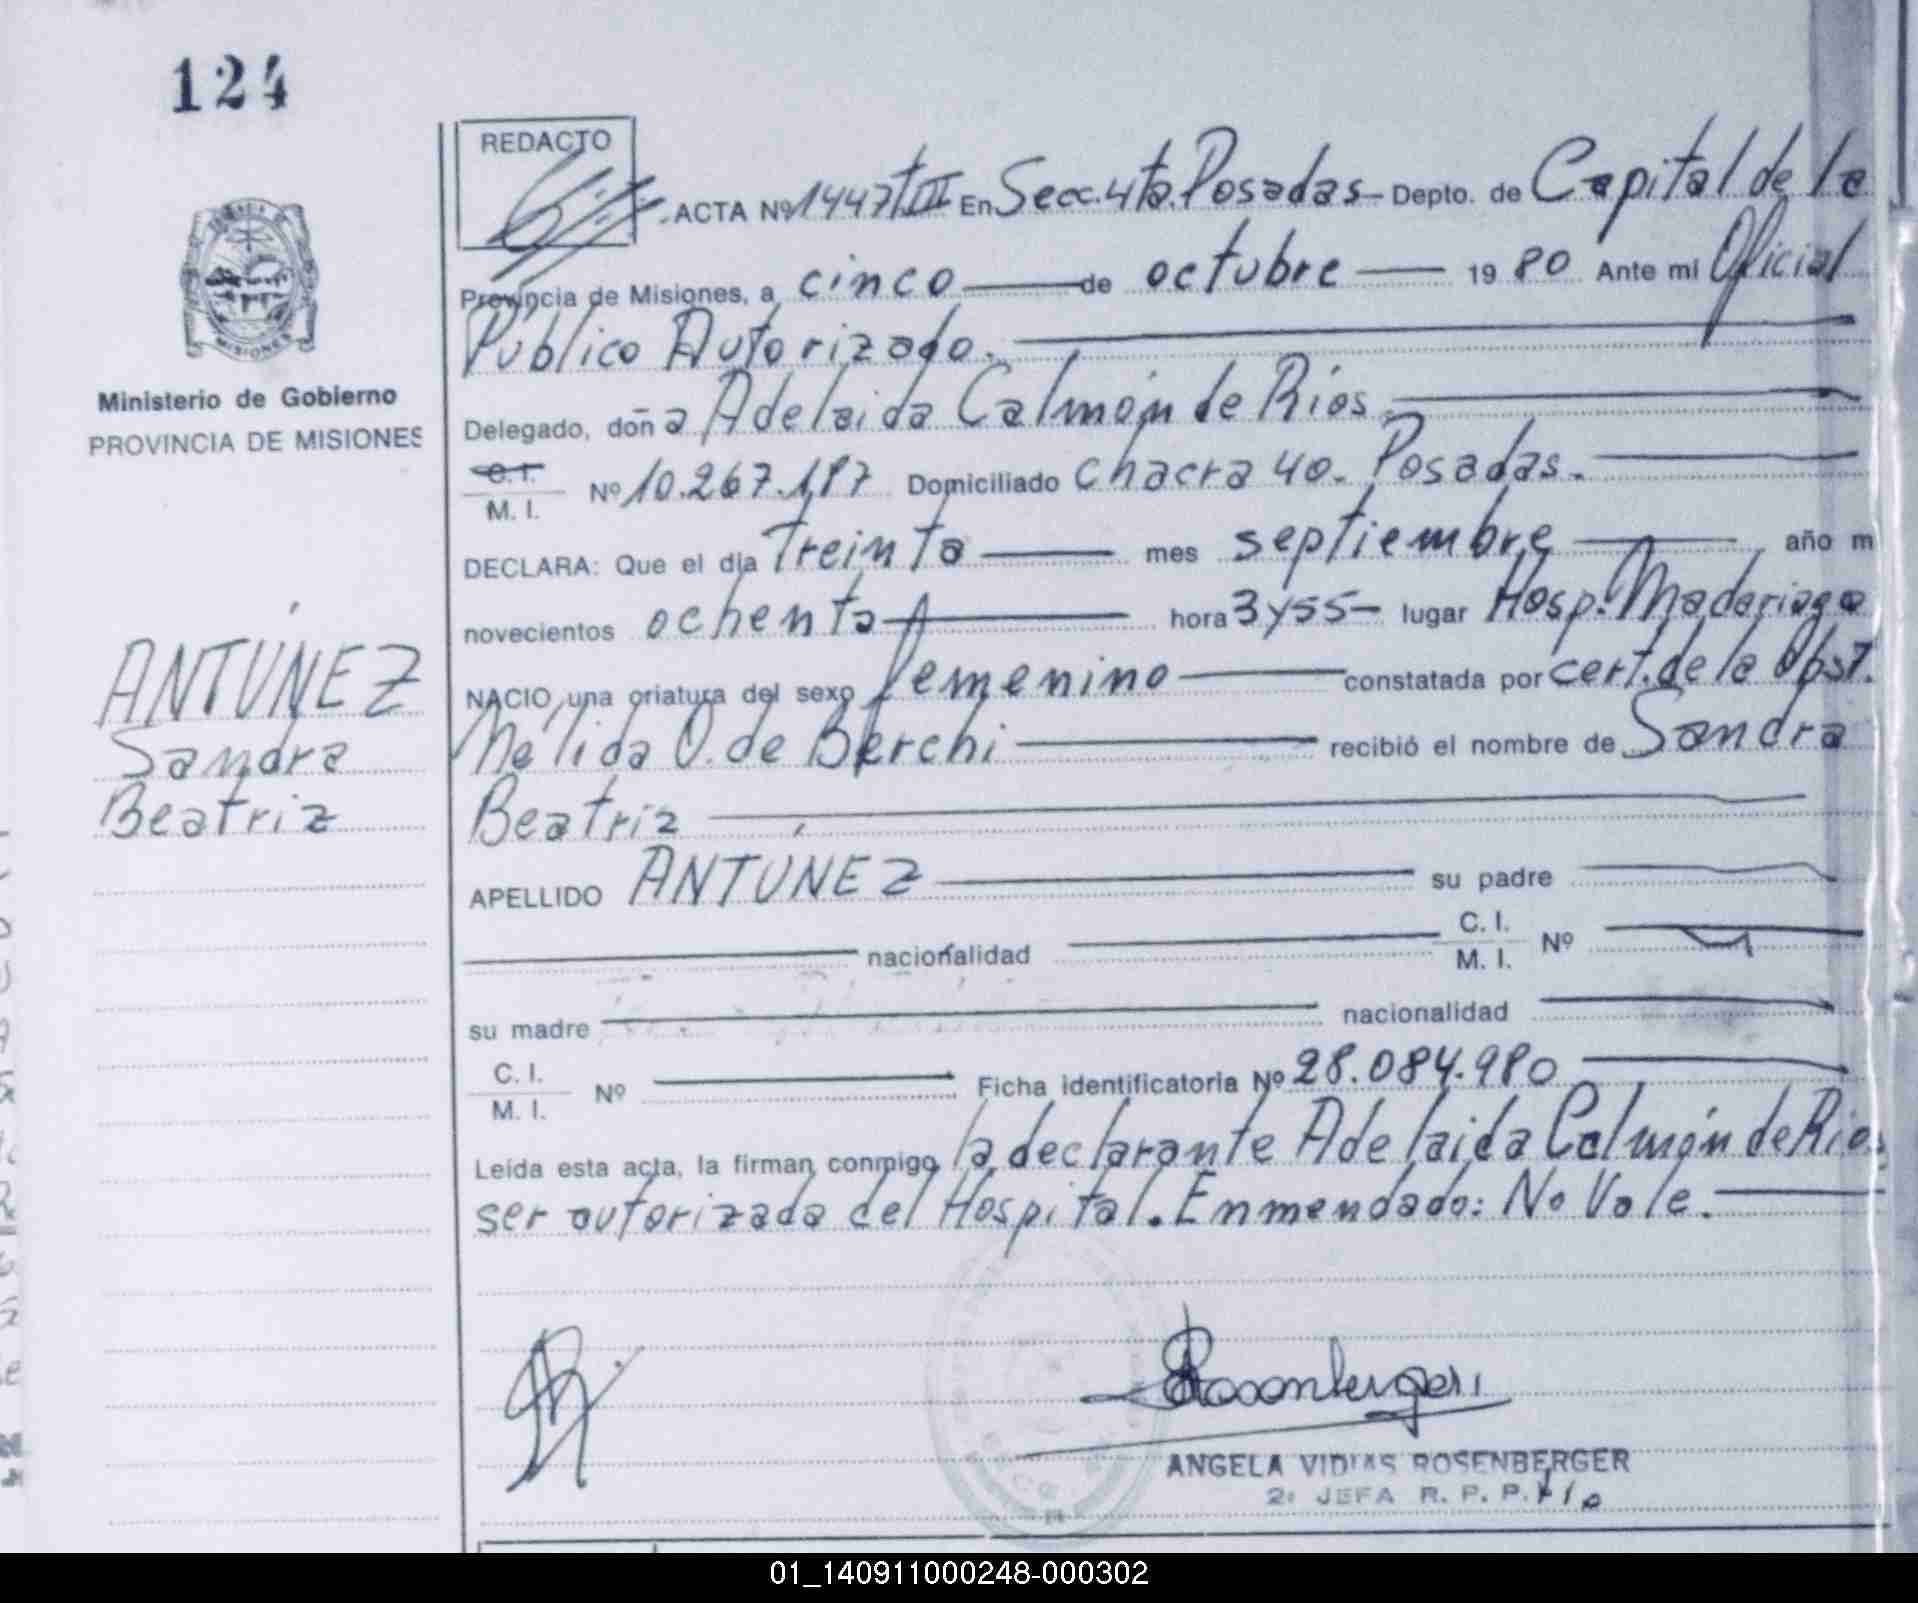 124
REDACTO
ACTA Nº 1447 T III En Secc. 4ta. Posadas - Depto. de Capital de la
Provincia de Misiones, a cinco de octubre 19 80 Ante mi Oficial
Público Autorizado.
Ministerio de Gobierno
PROVINCIA DE MISIONES
Delegado, doña Adelaida Calmón de Ríos.
C. I.
M. I. Nº 10.267.187 Domiciliado chacra 40. Posadas.
DECLARA: Que el día treinta mes septiembre año m
novecientos ochenta hora 3 y 55 - lugar Hosp. Madariaga
NACIO una criatura del sexo femenino constatada por cert. de la Obst.
Nélida O. de Berchi recibió el nombre de Sandra
Beatriz
ANTÚNEZ
Sandra
Beatriz
APELLIDO ANTÚNEZ su padre
nacionalidad C. I.
M. I. Nº
su madre nacionalidad
C. I.
M. I. Nº Ficha identificatoria Nº 28.084.980
Leída esta acta, la firman conmigo la declarante Adelaida Calmón de Rios
ser autorizada del Hospital. Enmendado: No Vale.
Rosenberger
ANGELA VIDIAS ROSENBERGER
JEFA R. P. P.
01_140911000248-000302